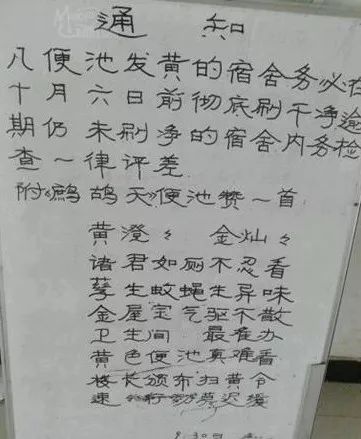 通 知
八便池发黄的宿舍务必在
十月六日前彻底刷干净逾
期仍未刷净的宿舍内务检
查一律评差.
附《鹧鸪天》便池赞一首.
黄澄々 金灿々
诸君如厕不忍看
孳生蚊蝇生异味
金屋宝气驱不散
卫生间 最难办
黄色便池真难看
楼长颁布扫黄令
速々行动莫迟缓
9.30日